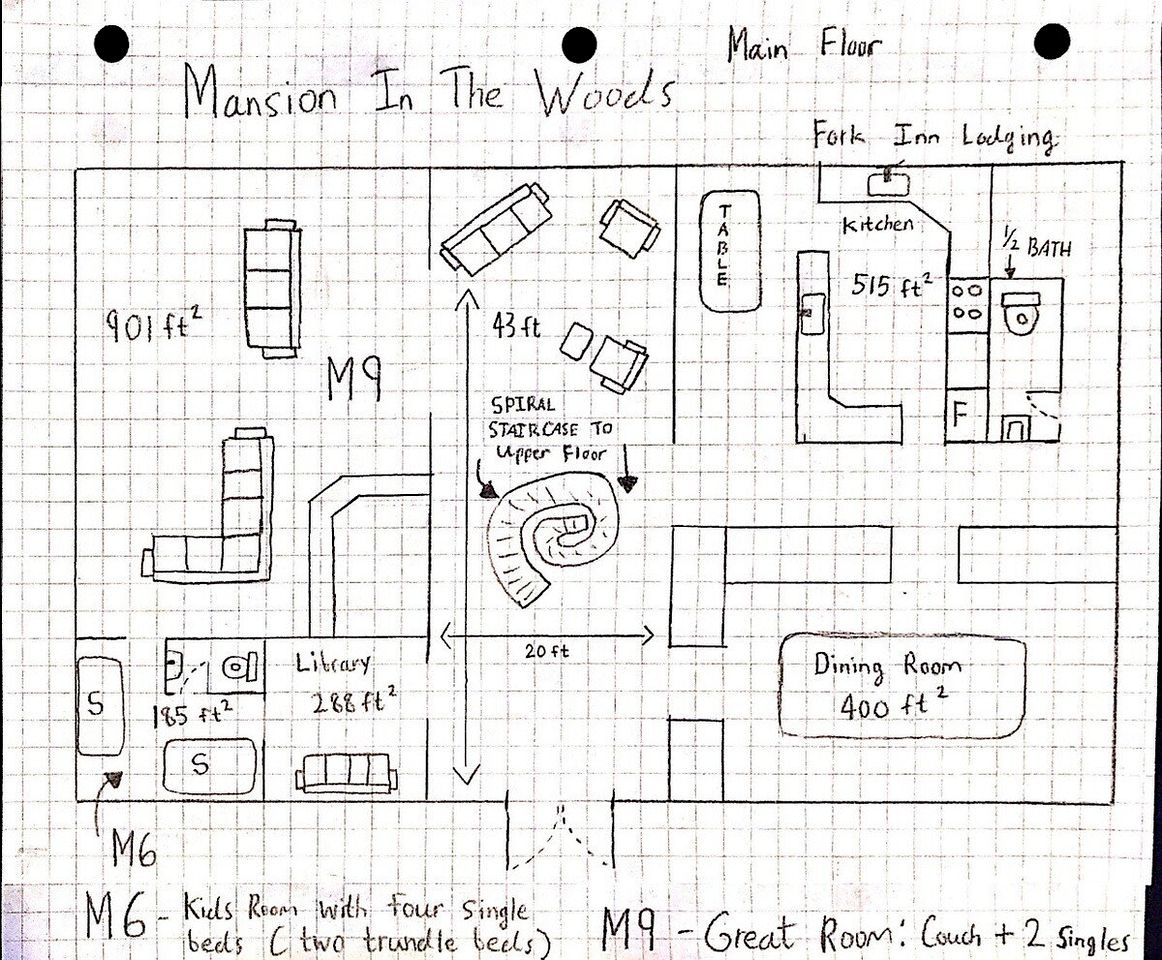 Main Floor
Mansion In The Woods
Fork Inn Lodging
TABLE
Kitchen
1/2 BATH
515 ft²
901 ft²
43 ft
M9
SPIRAL
STAIRCASE TO
Upper Floor
F
20 ft
Library
288 ft²
S
185 ft²
S
Dining Room
400 ft²
M6
M6 - Kids Room with four single
beds (two trundle beds)
M9 - Great Room: Couch + 2 Singles